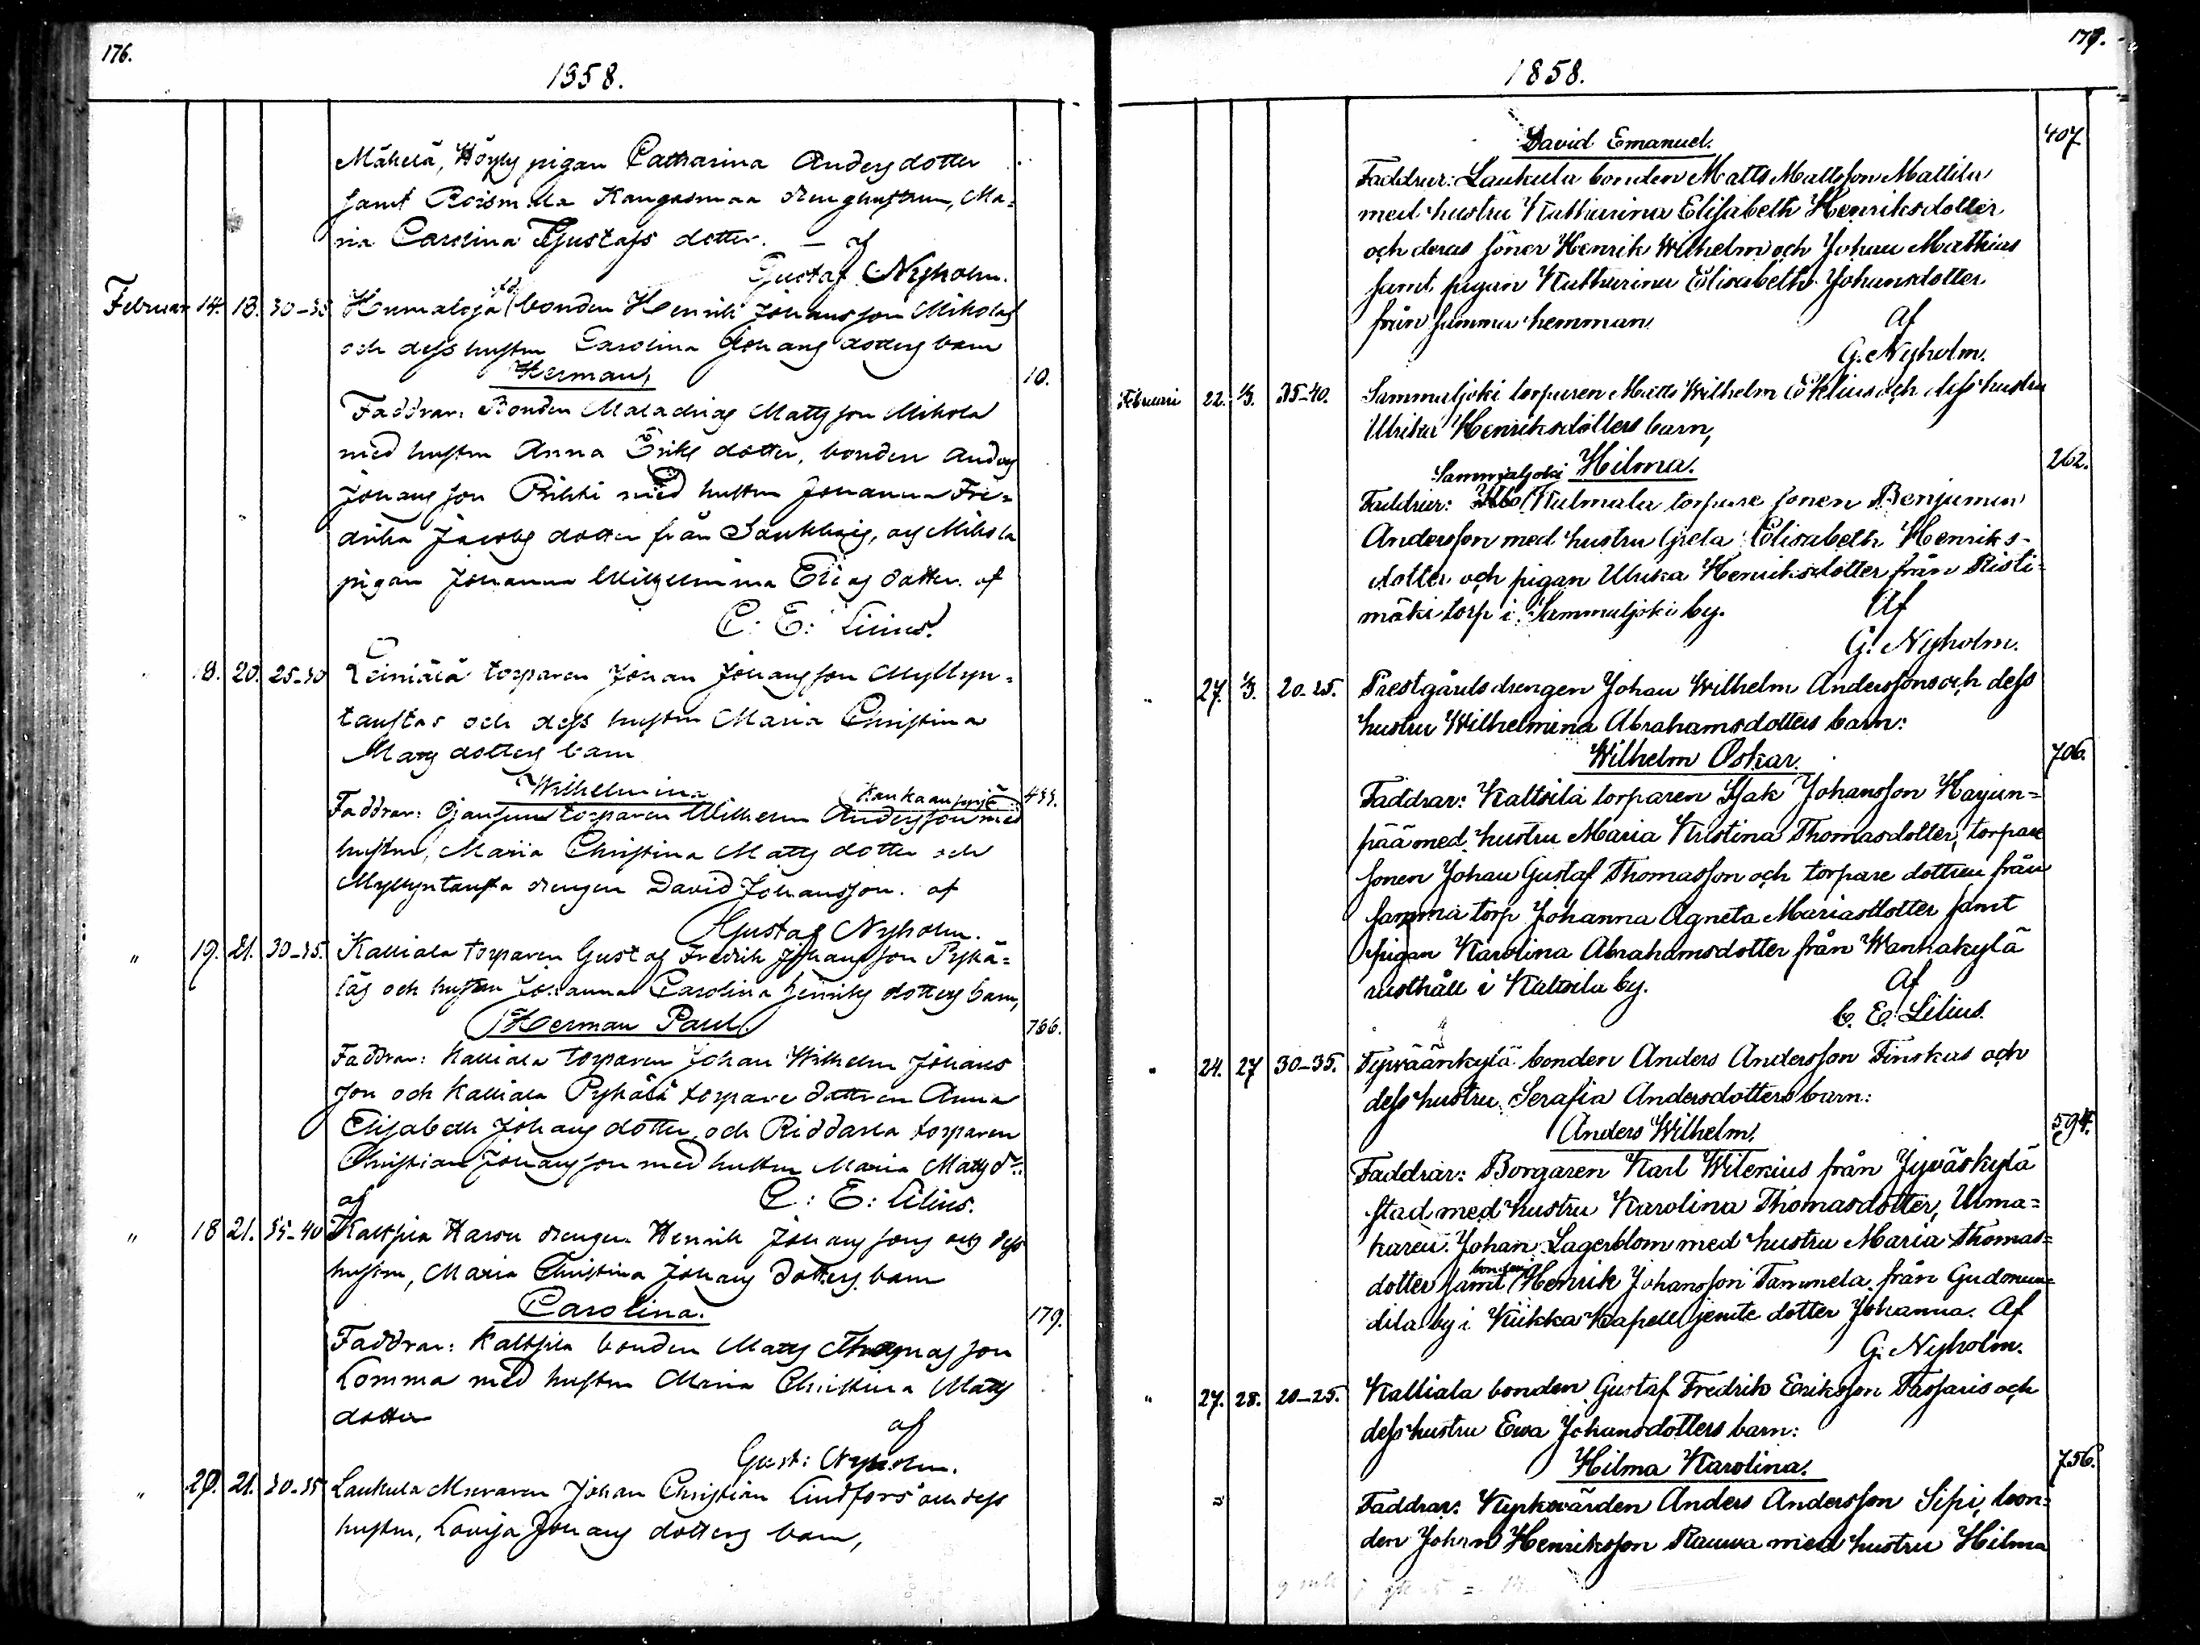 176.
1858.
Mähelä, Höyly pigan Catharina Anders dotter
samt Roismala Kangasmaa drenghustrun, Ma=
ria Carolina Gustafs dotter. — af
Gustaf Nyholm.
Februar 14. 18. 30–35 bonden Henrik Johansson Mikolas
och dess hustru Carolina Johans dotters barn
Herman, 10.
Faddrar: Bonden Malachias Mattsson Mikola
med hustru Anna Eriks dotter, bonden Anders
Johansson Prihti med hustru Johanna Fre=
drika Jacobs dotter från Soukko, och Mikola
pigan Johanna Wilhelmina Elias dotter. af
C: E: Lilius.
18. 20. 25–30 Leiniälä torparen Johan Johansson Myllyn=
taustas och dess hustru Maria Christina
Matts dotters barn
Wilhelmina
Faddrar: torparen Wilhelm Andersson med
hustru, Maria Christina Matts dotter och
Myllyntausta drengen David Johansson. af
Gustaf Nyholm.
" 19. 21. 30–35. Kalliala torparen Gustaf Fredrik Johansson Pyhä=
läs och hustru Johanna Carolina Henriks dotters barn,
Herman Paul. 766.
Faddrar: Kalliala torparen Johan Wilhelm Johans
son och Kalliala Pyhälä torpare dottren Anna
Elisabeth Johans dotter, och Riddarla torparen
Christian Johansson med hustru Maria Matts dr.
af C: E: Lilius.
" 18 21. 35–40 Kaltsila drengen Henrik Johanssons och dess
hustru, Maria Christina Johans dotters barn
Carolina. 179.
Faddrar: Kaltsila bonden Matts Thomasson
Lomma med hustru Maria Christina Matts
dotter af
Gust: Nyholm.
" 20. 21. 30–35 Laukula Muraren Johan Christian Lindfors och dess
hustru, Lovisa Johans dotters barn,
177.
1858.
David Emanuel. 407
Faddrar: Laukula bonden Matts Mattsson Mattila
med hustru Katharina Elisabeth Henriksdotter
och deras söner Henrik Wilhelm och Johan Mathias
samt pigan Katharina Elisabeth Johansdotter
från samma hemman. Af
G. Nyholm.
Februari 22. 1/3. 35–40. Sammaljoki torparen Matts Wilhelm Eklius och dess hustru
Ulrika Henriksdotters barn,
Hilma. 262.
Sammaljoki
Faddrar: Kulmala torpare sonen Benjamin
Andersson med hustru Greta Elisabeth Henriks-
dotter och pigan Ulrika Henriksdotter från Risti=
mäki torp i Sammaljoki by. Af
G. Nyholm.
" 27. 1/3. 20–25. Prestgårds drengen Johan Wilhelm Anderssons och dess
hustru Wilhelmina Abrahamsdotters barn:
Wilhelm Oskar. 706.
Faddrar: Kaltsila torparen Isak Johansson Hajun=
pää med hustru Maria Kristina Thomasdotter, torpare
sonen Johan Gustaf Thomasson och torpare dottren från
samma torp Johanna Agneta Mariasdotter samt
pigan Karolina Abrahamsdotter från Wanhakylä
rusthåll i Kaltsila by. Af
C. E. Lilius.
" 24. 27 30–35. Tyrväänkylä bonden Anders Andersson Finskas och
dess hustru Serafia Andersdotters barn:
Anders Wilhelm. 594.
Faddrar: Borgaren Karl Witenius från Jyväskylä
stad med hustru Karolina Thomasdotter, Urma=
karen Johan Lagerblom med hustru Maria Thomas=
dotter samt bonden Henrik Johansson Tammela från Gudmun=
dila by i Kiikka Kapell jemte dotter Johanna. Af
G. Nyholm.
" 27. 28. 20–25. Kalliala bonden Gustaf Fredrik Eriksson Tassaris och
dess hustru Ewa Johansdotters barn:
Hilma Karolina. 756.
Faddrar: Kyrkovärden Anders Andersson Sipi, bon=
den Johan Henriksson Rauwa med hustru Hilma